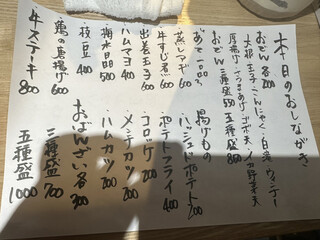 本日のおしながき
おでん各200
大根 玉子 こんにゃく 白滝 ウィンナー
厚揚げ さつまあげ ゴボ天 イカ野菜天
おでん 三種盛550 五種盛800
あて一品
・蒸しアサリ 600
・牛すじ煮 600
・出巻玉子 500
・ハムマヨ 400
・梅水晶 500
・枝豆 400
・鶏の唐揚げ 600
・牛ステーキ 800
揚げもの
・ハッシュドポテト 200
・ポテトフライ 400
・コロッケ 200
・メンチカツ 200
・ハムカツ 200
おばんざい各300
三種盛 700
五種盛 1000